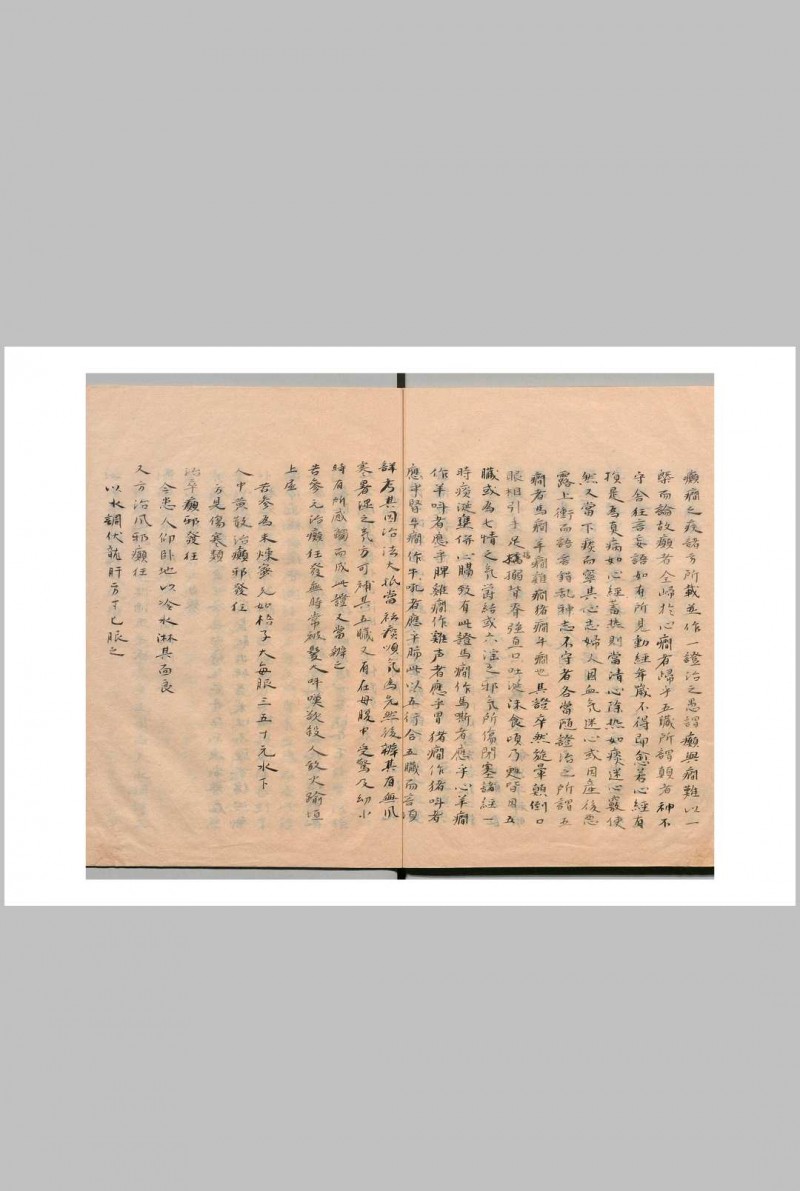 癲癇之疾諸方所載並作一證治之愚謂癲與癇難以一
槩而論故癲者全歸於心癇者歸乎五臟所謂顛者神不
守舍狂言妄語如有所見動經年歲不得即愈若心經有
損是為真病如心經蓄熱則當清心除熱如痰迷心竅使
然又當下痰而寧其心志婦人因血氣迷心或因產後惡
露上衝而語言錯亂神志不守者各當隨證治之所謂五
癇者馬癇羊癇雞癇猪癇牛癇也其證卒然旋暈顛倒口
眼相引手足搐搦背脊強直口吐涎沫食頃乃甦皆因五
臟或為七情之氣欝結或六淫之邪氣所傷閉塞諸經一
時痰涎集併心膈致有此證馬癇作馬嘶者應乎心羊癇
作羊呌者應乎脾雞癇作雞声者應乎胃猪癇作猪呌者
應乎腎牛癇作牛吼者應乎肺此以五行合五臟而言須
詳考其因治法大抵當祛痰順氣為先然後辨其有無風
寒暑濕之氣方可補其五臟又有在母腹中受驚及幼小
時有所感觸而成此證又當辨之
苦參元治癲狂發無時常被髮大呌嘆欲殺人放火踰垣
上屋
苦參為末煉蜜元如梧子大每服三五十元水下
人中黄散治癲邪發狂
方見傷寒類
治卒癲邪發狂
令患人仰卧地以冷水淋其面良
又方治風邪癲狂
以水調伏龍肝方寸匕服之